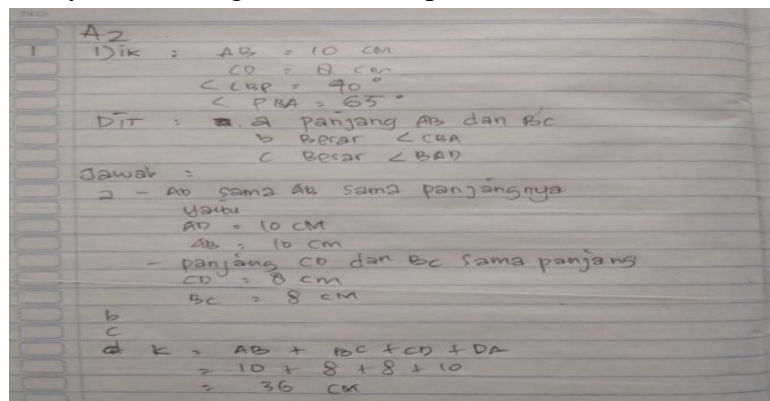 NO
A2
1 Dik : AB = 10 cm
CD = 8 cm
< CBP = 90°
< PBA = 65°
Dit : a panjang AB dan BC
b Besar < CBA
c Besar < BAD
Jawab :
a - AD sama AB sama panjangnya
yaitu
AD = 10 cm
AB = 10 cm
- panjang CD dan BC sama panjang
CD = 8 cm
BC = 8 cm
b
c
d K = AB + BC + CD + DA
= 10 + 8 + 8 + 10
= 36 cm